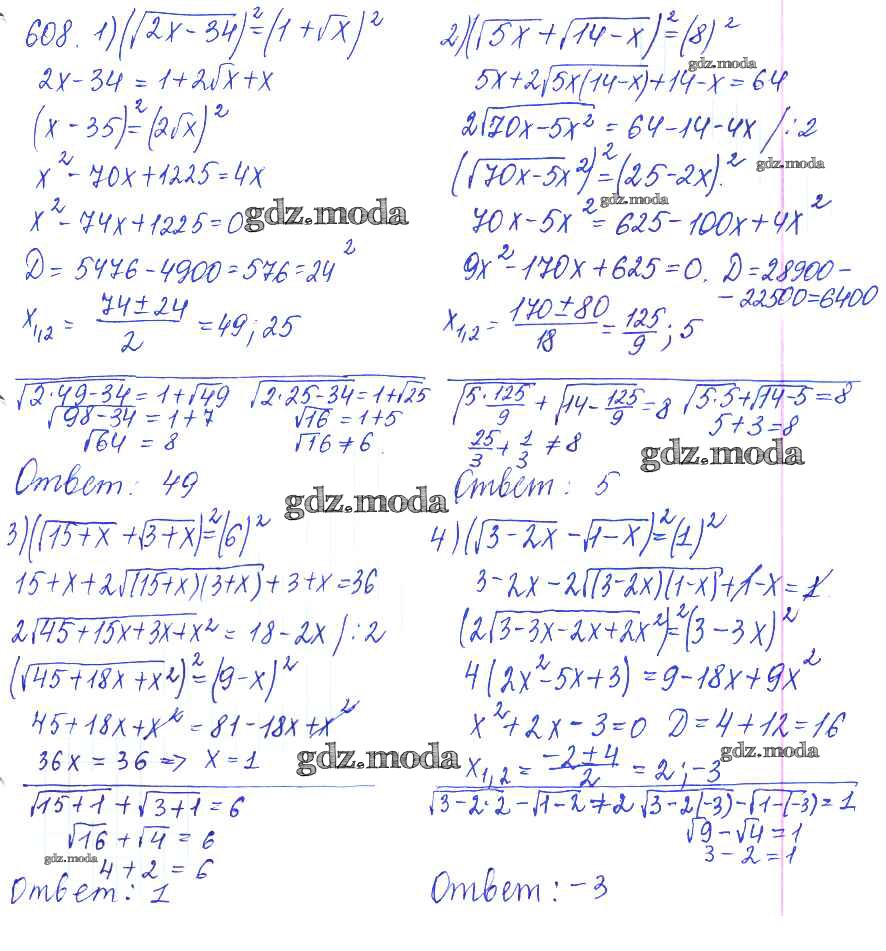 608. 1)(√(2x-34))²=(1+√x)²
2x-34 = 1+2√x+x
(x-35)²=(2√x)²
x²-70x+1225=4x
x²-74x+1225=0
gdz.moda
D = 5476-4900=576=24²
x₁,₂ = (74±24)/2 = 49; 25
√(2·49-34) = 1+√49
√(98-34) = 1+7
√64 = 8
√(2·25-34)=1+√25
√16 = 1+5
√16 ≠ 6.
Ответ: 49
2)(√(5x)+√(14-x))²=(8)²
gdz.moda
5x+2√(5x(14-x))+14-x=64
2√(70x-5x²) = 64-14-4x /:2
gdz.moda
(√(70x-5x²))²=(25-2x)².
gdz.moda
70x-5x²=625-100x+4x²
9x²-170x+625=0. D=28900-
-22500=6400
x₁,₂ = (170±80)/18 = 125/9; 5
√(5·125/9) + √(14-125/9)=8
25/3+1/3 ≠ 8
√(5·5)+√(14-5)=8
5+3=8
gdz.moda
Ответ: 5
gdz.moda
3)(√(15+x)+√(3+x))²=(6)²
15+x+2√((15+x)(3+x))+3+x=36
2√(45+15x+3x+x²) = 18-2x /:2
(√(45+18x+x²))²=(9-x)²
45+18x+x²=81-18x+x²
36x = 36 => x=1
gdz.moda
√(15+1)+√(3+1)=6
√16+√4=6
gdz.moda
4+2=6
Ответ: 1
4)(√(3-2x)-√(1-x))²=(1)²
3-2x-2√((3-2x)(1-x))+1-x=1
(2√(3-3x-2x+2x²))²=(3-3x)²
4(2x²-5x+3)=9-18x+9x²
x²+2x-3=0 D=4+12=16
gdz.moda
x₁,₂ = (-2±4)/2 = 2; -3
√(3-2·2)-√(1-2)≠2
√(3-2(-3))-√(1-(-3))=1
√9-√4=1
3-2=1
Ответ: -3